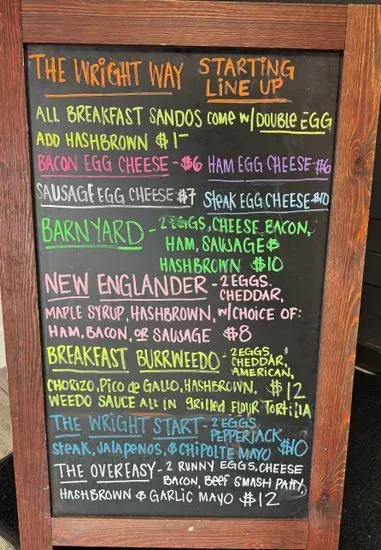 THE WRIGHT WAY STARTING
LINE UP
ALL BREAKFAST SANDOS COME W/ DOUBLE EGG
ADD HASHBROWN $1-
BACON EGG CHEESE - $6 HAM EGG CHEESE $6
SAUSAGE EGG CHEESE $7 STEAK EGG CHEESE $10
BARNYARD - 2 EGGS, CHEESE, BACON,
HAM, SAUSAGE &
HASHBROWN $10
NEW ENGLANDER - 2 EGGS.
CHEDDAR,
MAPLE SYRUP, HASHBROWN, W/CHOICE OF:
HAM, BACON, OR SAUSAGE $8
BREAKFAST BURRWEEDO - 2 EGGS,
CHEDDAR,
AMERICAN,
CHORIZO, PICO DE GALLO, HASHBROWN, $12
WEEDO SAUCE ALL IN GRILLED FLOUR TORTILLA
THE WRIGHT START - 2 EGGS
PEPPERJACK,
STEAK, JALAPENOS, & CHIPOLTE MAYO $10
THE OVEREASY - 2 RUNNY EGGS, CHEESE
BACON, BEEF SMASH PATTY,
HASHBROWN & GARLIC MAYO $12